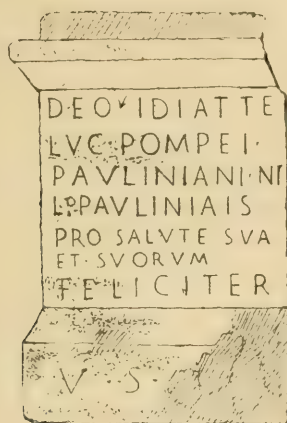 DEO IDIATTE
LVC·POMPEI·
PAVLINIANI·NI
L·P·PAVLINIAIS
PRO SALVTE SVA
ET·SVORVM
FELICITER
V S